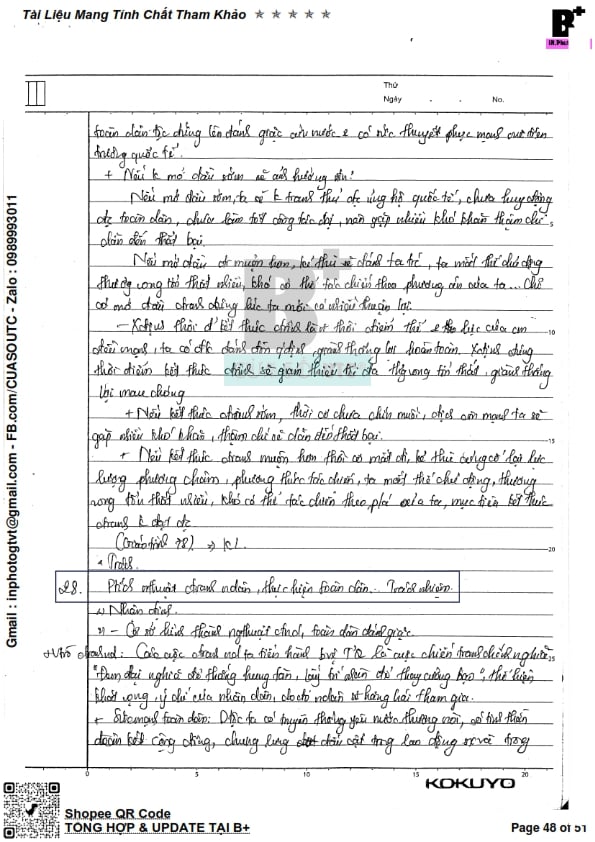 Tài Liệu Mang Tính Chất Tham Khảo ★ ★ ★ ★ ★
B+
IN.Photo
Thứ
Ngày . . No.
toàn dân tộc đứng lên đánh giặc cứu nước & có sức thuyết phục mạnh mẽ trên
trường quốc tế.
+ Nếu k mở đầu sớm sẽ ảnh hưởng gì?
Nếu mở đầu sớm, ta sẽ k tranh thủ đc ủng hộ quốc tế, chưa huy động
đc toàn dân, chưa làm tốt công tác cbị, nên gặp nhiều khó khăn thậm chí
dẫn đến thất bại.
Nếu mở đầu muộn hơn, kẻ thù sẽ đánh ta trc, ta mất thế chủ động
thương vong tổn thất nhiều, khó có thể tác chiến theo phương án của ta... Chỉ
có mở đầu ctranh đúng lúc ta mới có nhiều thuận lợi.
- Xđịnh thời kết thúc ctranh là thời điểm thế & lực của cm
đều mạnh, ta có đk đánh đòn qđịnh, giành thắng lợi hoàn toàn. Xđịnh đúng
thời điểm kết thúc ctranh sẽ giảm thiểu tối đa thg vong tổn thất, giành thắng
lợi mau chóng
+ Nếu kết thúc ctranh sớm, thời cơ chưa chín muồi, địch còn mạnh ta sẽ
gặp nhiều khó khăn, thậm chí sẽ dẫn đến thất bại.
+ Nếu kết thúc ctranh muộn hơn thời cơ mất đi, kẻ thù củng cố lại lực
lượng phương châm, phương thức tác chiến, ta mất thế chủ động, thương
vong tổn thất nhiều, khó có thể tác chiến theo p/á của ta, mục tiêu kết thúc
ctranh k đạt đc
=> KL.
* Trách
28. Ptích nthuật ctranh ndân, thực hiện toàn dân... Trách nhiệm.
Nhận định.
- Cơ sở hình thành nghthuật ctnd, toàn dân đánh giặc.
Các cuộc ctranh mà ta tiến hành bvệ TQ là cuộc chiến tranh chính nghĩa
"Đem đại nghĩa để thắng hung tàn, lấy chí nhân để thay cường bạo", thể hiện
khát vọng, ý chí của nhân dân, do đó ndân sẽ hăng hái tham gia.
+ Smạnh toàn dân: Dtộc ta có truyền thống yêu nước thương nòi, có tinh thần
đoàn kết cộng đồng, chung lưng đấu cật trong lao động sx và trong
5
10
15
20
25
0 5 10 15 20
KOKUYO
Gmail : inphotogtvt@gmail.com - FB.com/CUASOUTC - Zalo : 0989993011
Shopee QR Code
TỔNG HỢP & UPDATE TẠI B+
Page 48 of 51